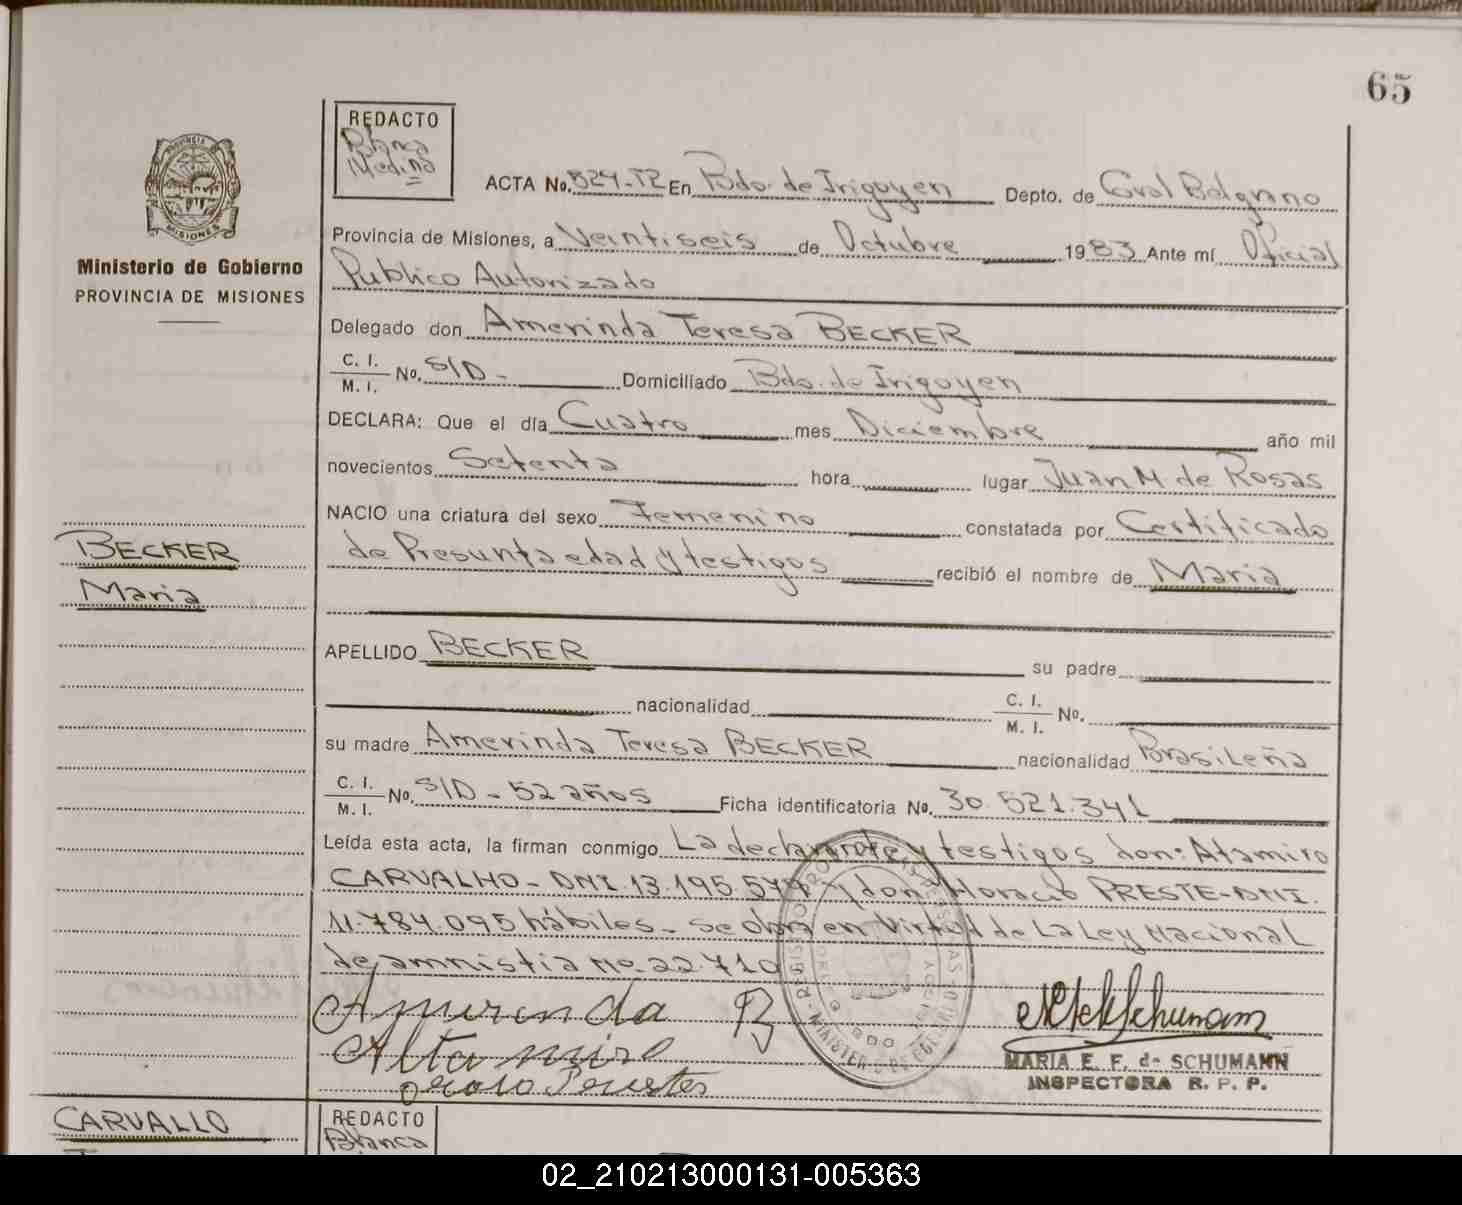 65
REDACTO
Blanca
Medina
PROVINCIA DE
MISIONES
Ministerio de Gobierno
PROVINCIA DE MISIONES
ACTA No. 524-T2 En Bdo. de Irigoyen Depto. de Gral Belgrano
Provincia de Misiones, a Veintiseis de Octubre 1983 Ante mí Oficial
Publico Autorizado
Delegado don Amerinda Teresa BECKER
C. I.
M. I. No. S/D - Domiciliado Bdo. de Irigoyen
DECLARA: Que el día Cuatro mes Diciembre año mil
novecientos Setenta hora lugar Juan M de Rosas
NACIO una criatura del sexo Femenino constatada por Certificado
de Presunta edad y testigos recibió el nombre de Maria
BECKER
Maria
APELLIDO BECKER su padre
nacionalidad C. I.
M. I. No.
su madre Amerinda Teresa BECKER nacionalidad Brasileña
C. I.
M. I. No. S/D - 52 años Ficha identificatoria No. 30.521.341
Leída esta acta, la firman conmigo La declarante y testigos don: Atamiro
CARVALHO - DNI. 13.195.574 y don Horacio PRESTE-DNI.
11.784.095 hábiles - Se obra en virtud de La Ley Nacional
de amnistia No. 22.710
Amerinda B
Altamiro
MARIA E. F. de SCHUMANN
INSPECTORA R. P. P.
CARVALLO
REDACTO
Blanca
02_210213000131-005363